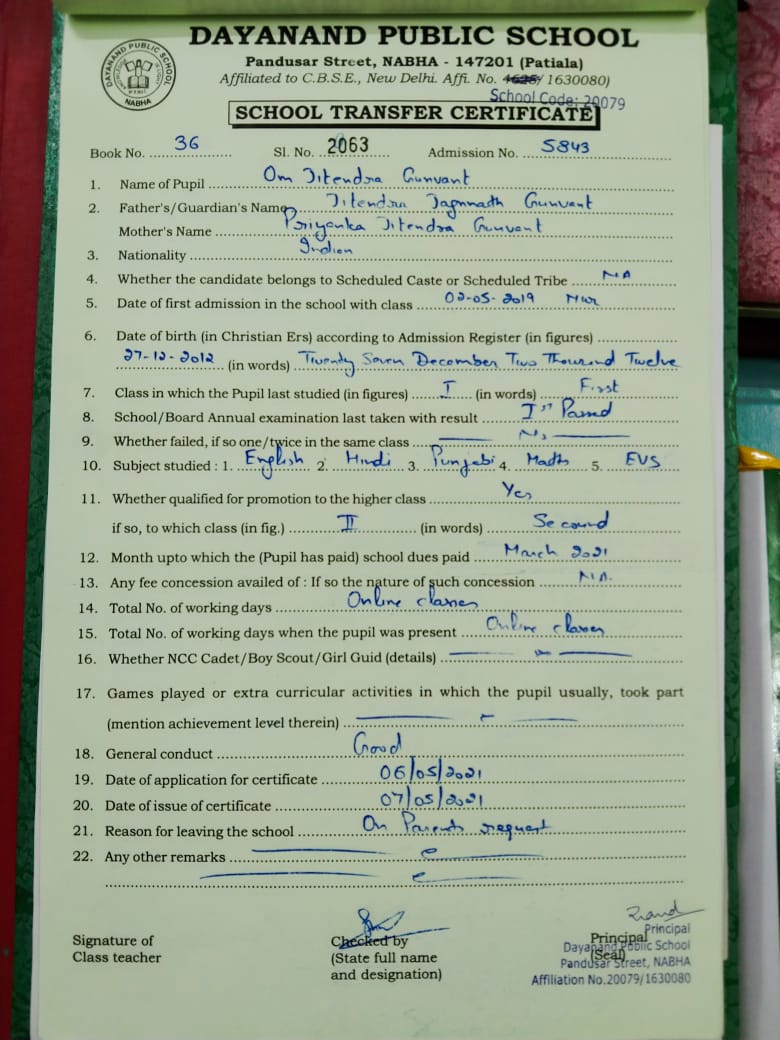 DAYANAND PUBLIC SCHOOL
Pandusar Street, NABHA - 147201 (Patiala)
Affiliated to C.B.S.E., New Delhi. Affi. No. 1630080)
School Code: 20079
DAYANAND PUBLIC SCHOOL NABHA
SCHOOL TRANSFER CERTIFICATE
Book No. 36 Sl. No. 2063 Admission No. 5843
1. Name of Pupil Om Jitendra Gunvant
2. Father's/Guardian's Name Jitendra Jagnnath Gunvant
Mother's Name Priyanka Jitendra Gunvant
3. Nationality Indian
4. Whether the candidate belongs to Scheduled Caste or Scheduled Tribe NA
5. Date of first admission in the school with class 02-05-2019 Nur
6. Date of birth (in Christian Ers) according to Admission Register (in figures)
27-12-2012 (in words) Twenty Seven December Two Thousand Twelve
7. Class in which the Pupil last studied (in figures) I (in words) First
8. School/Board Annual examination last taken with result Ist Passed
9. Whether failed, if so one/twice in the same class No
10. Subject studied : 1. English 2. Hindi 3. Punjabi 4. Math 5. EVS
11. Whether qualified for promotion to the higher class Yes
if so, to which class (in fig.) II (in words) Second
12. Month upto which the (Pupil has paid) school dues paid March 2021
13. Any fee concession availed of : If so the nature of such concession N.A.
14. Total No. of working days Online classes
15. Total No. of working days when the pupil was present Online classes
16. Whether NCC Cadet/Boy Scout/Girl Guid (details)
17. Games played or extra curricular activities in which the pupil usually, took part
(mention achievement level therein)
18. General conduct Good
19. Date of application for certificate 06/05/2021
20. Date of issue of certificate 07/05/2021
21. Reason for leaving the school On Parents request
22. Any other remarks
Signature of
Class teacher
Checked by
(State full name
and designation)
Principal
(Seal)
Principal
Dayanand Public School
Pandusar Street, NABHA
Affiliation No.20079/1630080